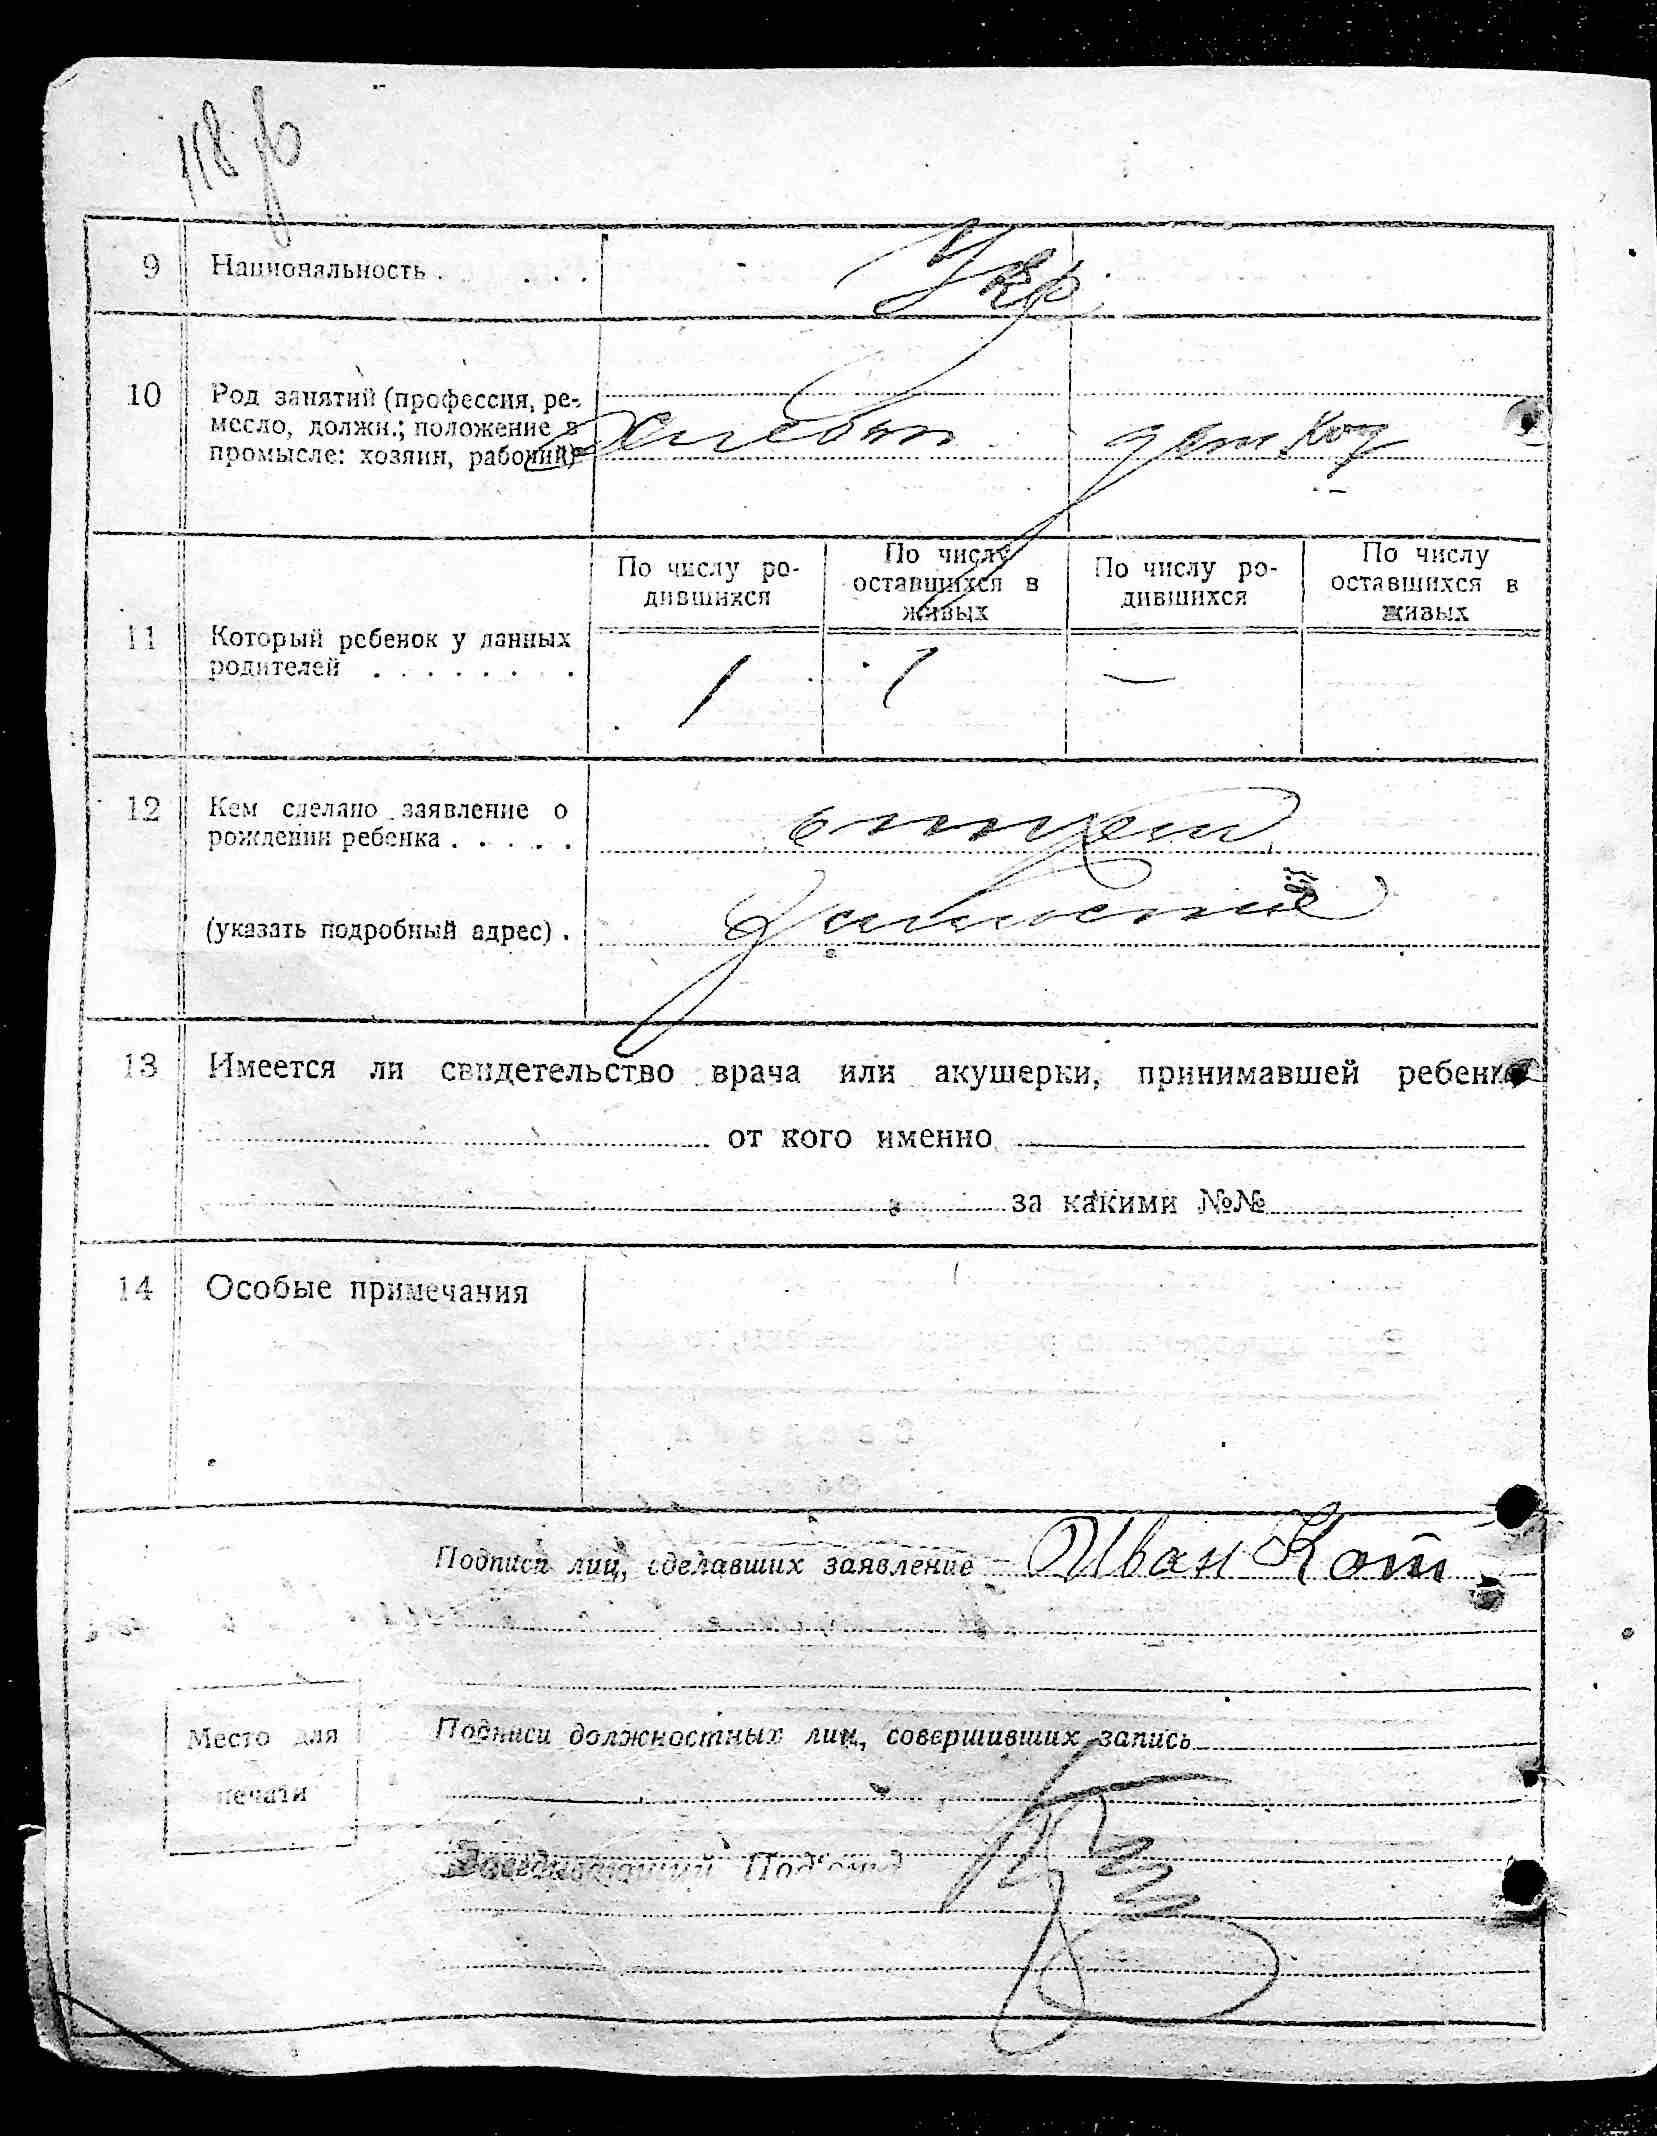 118 об
9 Национальность . . . . Укр
10 Род занятий (профессия, ре-
месло, должн.; положение в
промысле: хозяин, рабочий)
По числу ро-
дившихся
По числу
оставшихся в
живых
По числу ро-
дившихся
По числу
оставшихся в
живых
11 Который ребенок у данных
родителей . . . . . . . .
1 1 —
12 Кем сделано заявление о
рождении ребенка . . . . .
(указать подробный адрес) .
13 Имеется ли свидетельство врача или акушерки, принимавшей ребенка
от кого именно
за какими №№
14 Особые примечания
Подписи лиц, сделавших заявление Иван Кот
Место для
печати
Подписи должностных лиц, совершивших запись
Заведывающий Под'отд